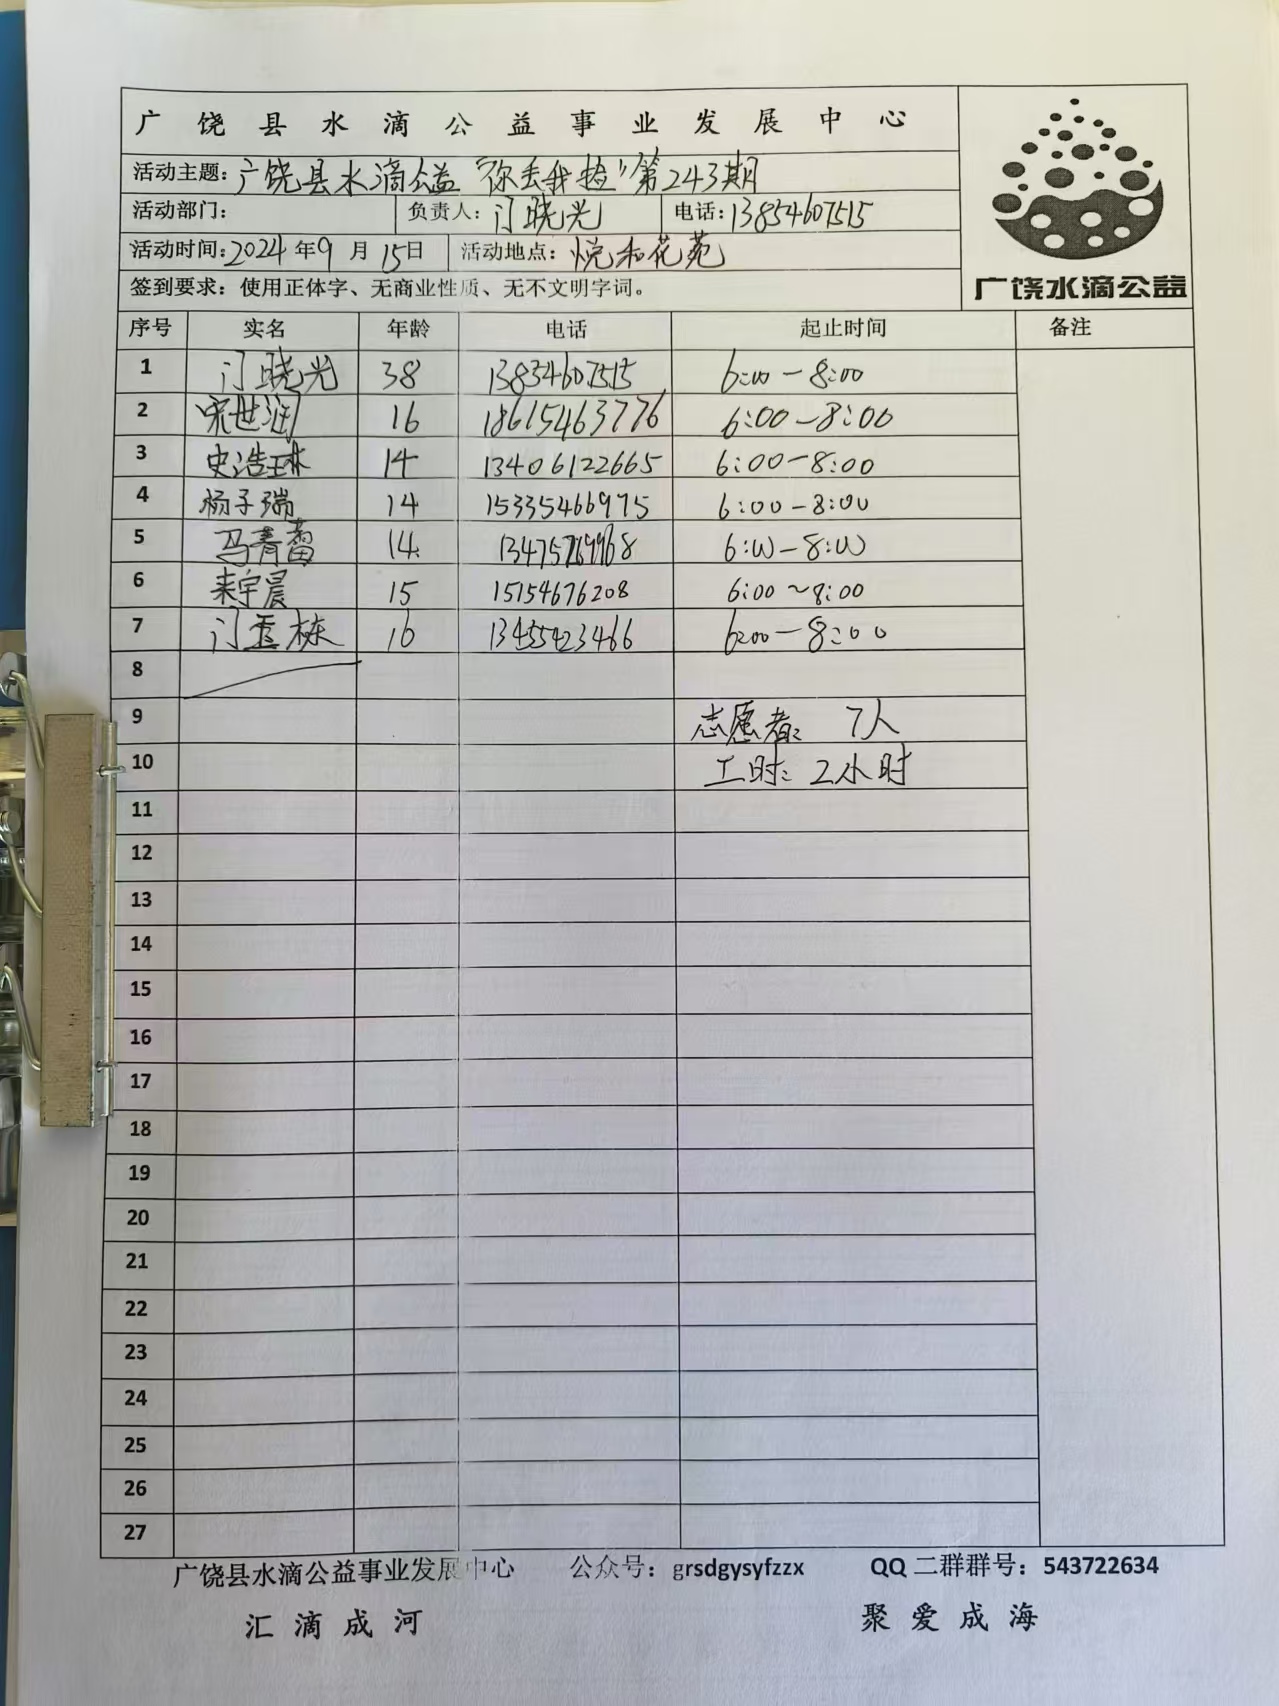 广饶县水滴公益事业发展中心
活动主题：广饶县水滴公益“你丢我捡”第243期
活动部门： 负责人：门晓光 电话：13854607515
活动时间：2024年9月15日 活动地点：悦和花苑
签到要求：使用正体字、无商业性质、无不文明字词。
广饶水滴公益
序号 实名 年龄 电话 起止时间 备注
1 门晓光 38 13854607515 6:00-8:00
2 宋世润 16 18615463776 6:00-8:00
3 史浩琳 14 13406122665 6:00-8:00
4 杨子瑞 14 15335466975 6:00-8:00
5 马青蕾 14 6:00-8:00
6 来宇晨 15 15154676208 6:00~8:00
7 门孟栋 16 13455423466 6:00-8:00
8
9 志愿者：7人
10 工时：2小时
11
12
13
14
15
16
17
18
19
20
21
22
23
24
25
26
27
广饶县水滴公益事业发展中心 公众号：grsdgysyfzzx QQ二群群号：543722634
汇滴成河 聚爱成海